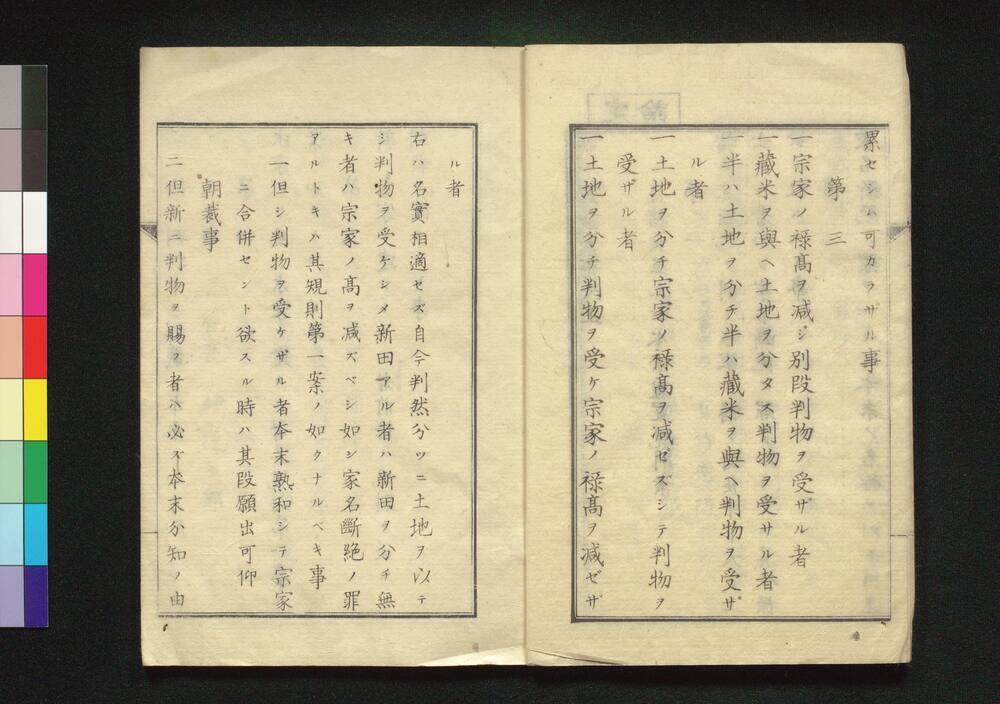 累セシム可カラザル事
第三
一宗家ノ禄髙ヲ減ジ別段判物ヲ受ザル者
一藏米ヲ與ヘ土地ヲ分タス判物ヲ受サル者
一半ハ土地ヲ分チ半ハ藏米ヲ與ヘ判物ヲ受ザ
ル者
一土地ヲ分チ宗家ノ禄髙ヲ減ゼズシテ判物ヲ
受ザル者
一土地ヲ分チ判物ヲ受ケ宗家ノ禄髙ヲ減ゼザ
ル者
右ハ名實相適セズ自今判然分ツニ土地ヲ以テ
シ判物ヲ受ケシメ新田アル者ハ新田ヲ分チ無
キ者ハ宗家ノ髙ヲ减ズベシ如シ家名斷絶ノ罪
アルトキハ其規則第一案ノ如クナルベキ事
一但シ判物ヲ受ケザル者本末熟和シテ宗家
ニ合併セント欲スル時ハ其段願出可仰
朝裁事
二但新ニ判物ヲ賜フ者ハ必ズ本末分知ノ由